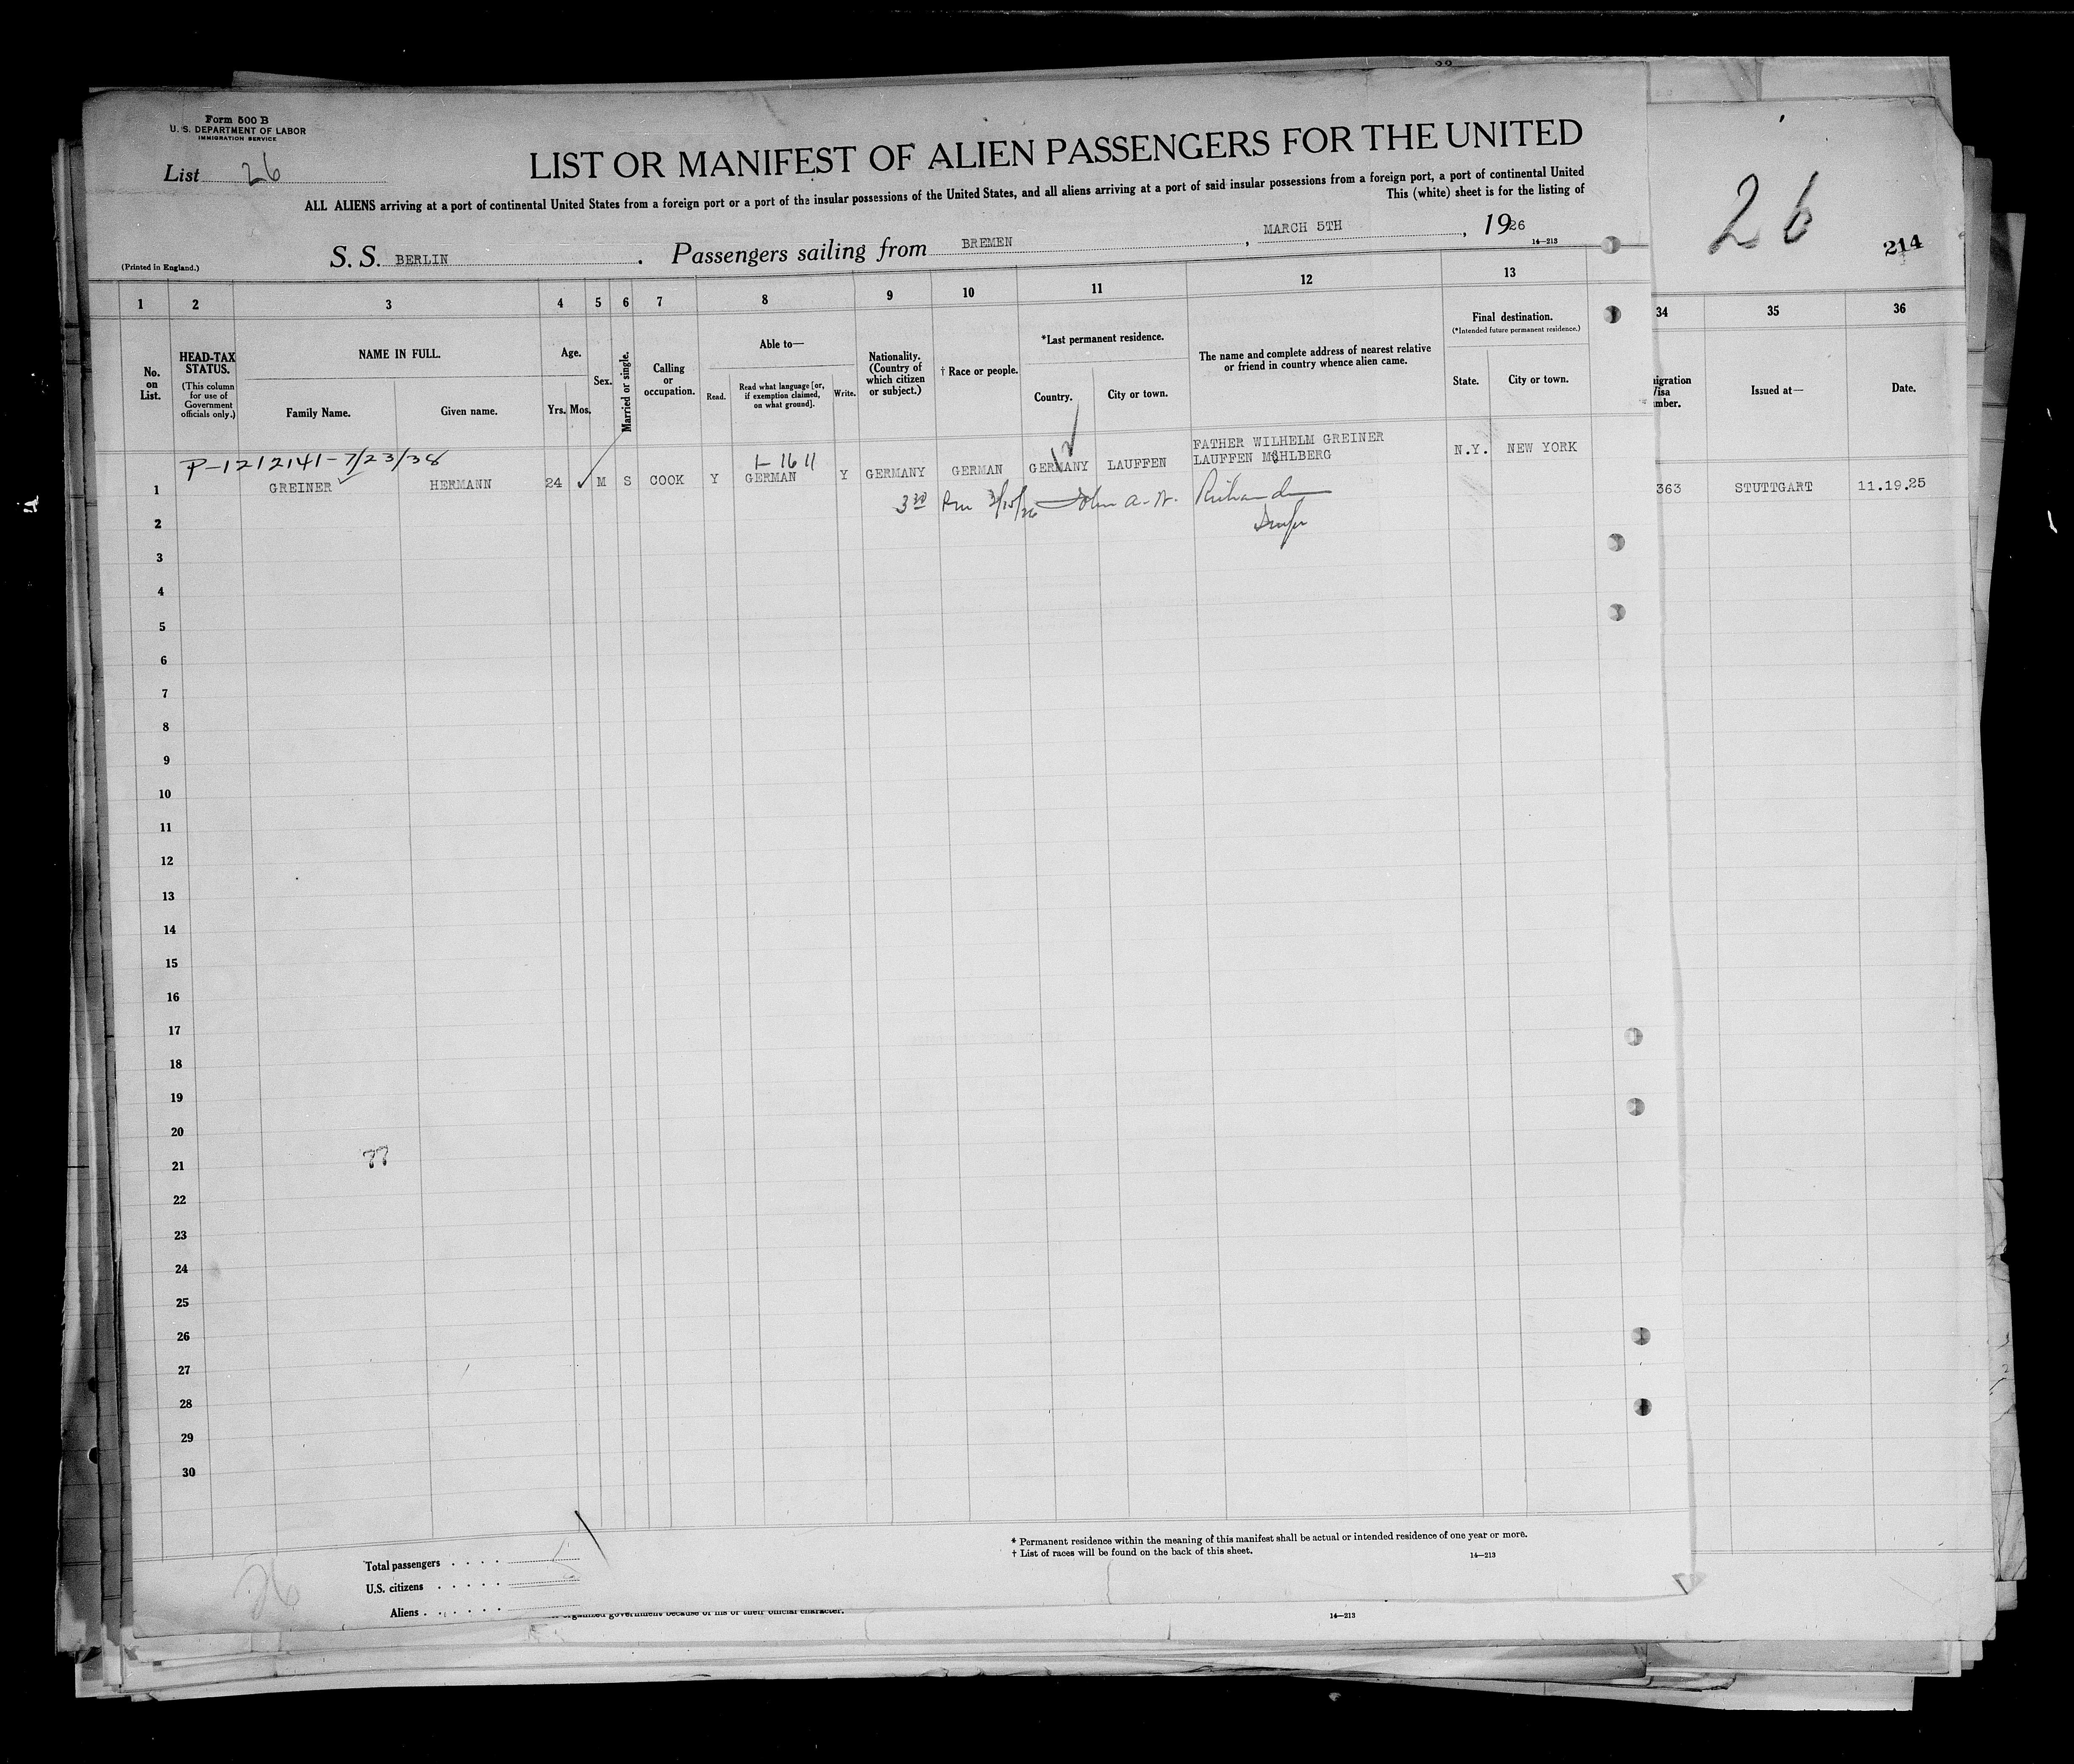 Form 500 B
U. S. DEPARTMENT OF LABOR
IMMIGRATION SERVICE
List 26
LIST OR MANIFEST OF ALIEN PASSENGERS FOR THE UNITED
ALL ALIENS arriving at a port of continental United States from a foreign port or a port of the insular possessions of the United States, and all aliens arriving at a port of said insular possessions from a foreign port, a port of continental United
This (white) sheet is for the listing of
S. S. BERLIN . Passengers sailing from BREMEN , MARCH 5TH , 1926
(Printed in England.)
14—213
26
214
1 2 3 4 5 6 7 8 9 10 11 12 13 34 35 36
No. on List.
HEAD-TAX STATUS.
(This column for use of Government officials only.)
NAME IN FULL.
Family Name. Given name.
Age.
Yrs. Mos.
Sex.
Married or single.
Calling or occupation.
Able to—
Read. Read what language [or, if exemption claimed, on what ground]. Write.
Nationality. (Country of which citizen or subject.)
† Race or people.
*Last permanent residence.
Country. City or town.
The name and complete address of nearest relative or friend in country whence alien came.
Final destination.
(*Intended future permanent residence.)
State. City or town.
igration
Visa
mber.
Issued at—
Date.
P-1212141-7/23/38
1 GREINER HERMANN 24 M S COOK Y GERMAN Y GERMANY GERMAN GERMANY LAUFFEN FATHER WILHELM GREINER N.Y. NEW YORK
LAUFFEN MÜHLBERG
363 STUTTGART 11.19.25
John A. W.
2
3
4
5
6
7
8
9
10
11
12
13
14
15
16
17
18
19
20
21
22
23
24
25
26
27
28
29
30
Total passengers . . . .
U.S. citizens . . . . .
Aliens . . . . . .
26
* Permanent residence within the meaning of this manifest shall be actual or intended residence of one year or more.
† List of races will be found on the back of this sheet.
14—213
organized government because of his or their official character.
14—213